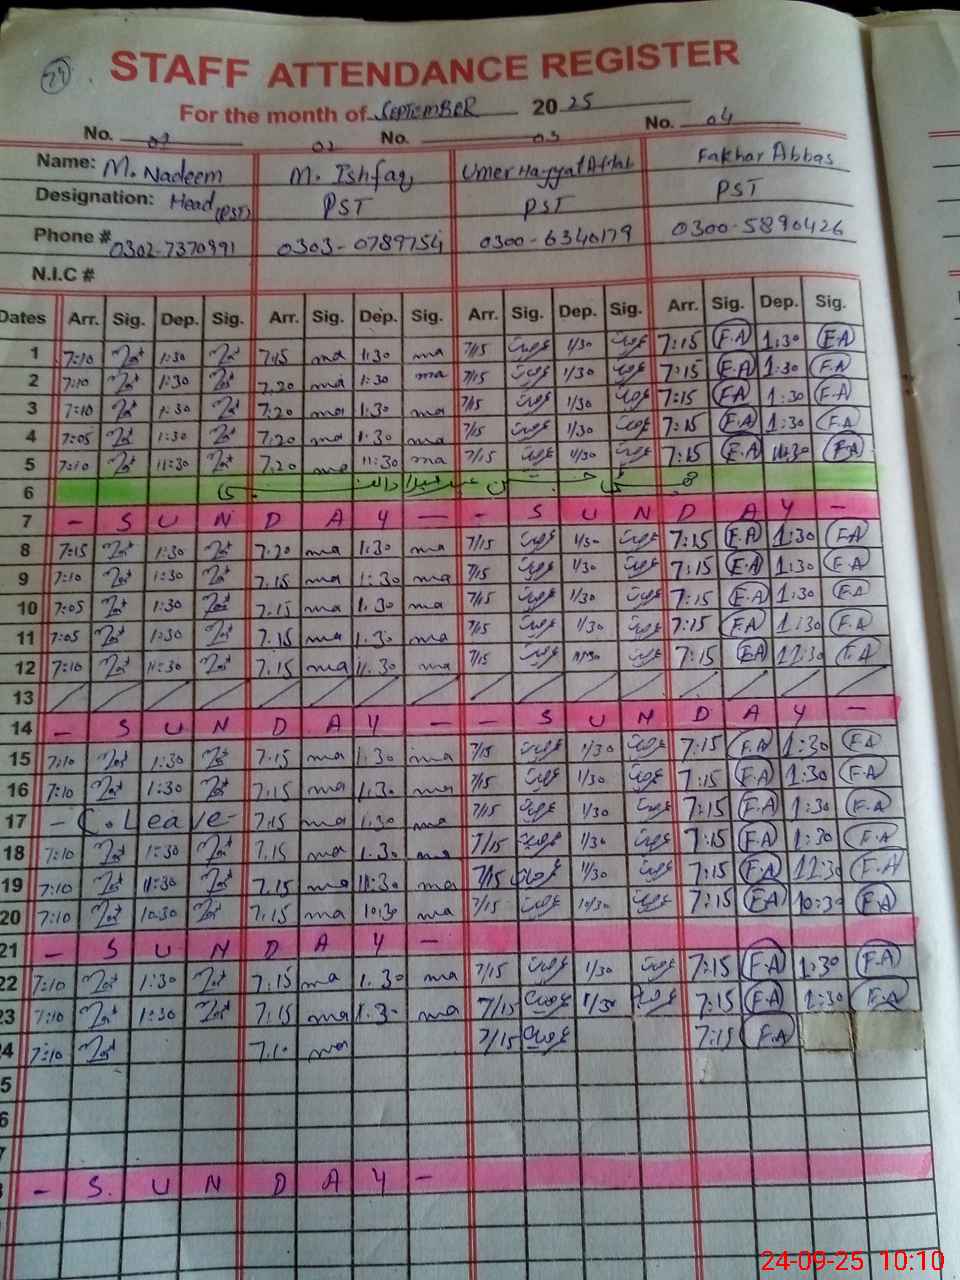 24
STAFF ATTENDANCE REGISTER
For the month of SEPTEMBER 2025
No. 01 02 No. 03 No. 04
Name: M. Nadeem M. Ishfaq Umer Hayyat Aftab Fakhar Abbas
Designation: Head (PST) PST PST PST
Phone # 0302-7370991 0303-0789754 0300-6340179 0300-5890426
N.I.C #
Dates Arr. Sig. Dep. Sig. Arr. Sig. Dep. Sig. Arr. Sig. Dep. Sig. Arr. Sig. Dep. Sig.
1 7:10 1:30 7.15 ma 1:30 ma 7/15 1/30 7:15 F.A 1:30 F.A
2 7:10 1:30 7.20 ma 1:30 ma 7/15 1/30 7:15 F.A 1:30 F.A
3 7:10 1:30 7.20 ma 1:30 ma 7/15 1/30 7:15 FA 1:30 F.A
4 7:05 1:30 7.20 ma 1:30 ma 7/15 1/30 7:15 F.A 1:30 F.A
5 7:10 11:30 7.20 ma 11:30 ma 7/15 11/30 7:15 F.A 11:30 F.A
6
7 - S U N D A Y - - S U N D A Y -
8 7:15 1:30 7.20 ma 1.30 ma 7/15 1/30 7:15 F.A 1:30 F.A
9 7:10 1:30 7.15 ma 1:30 ma 7/15 1/30 7:15 F.A 1:30 F.A
10 7:05 1:30 7.15 ma 1.30 ma 7/15 1/30 7:15 F.A 1:30 F.A
11 7:05 1:30 7.15 ma 1.30 ma 7/15 1/30 7:15 F.A 1:30 F.A
12 7:10 11:30 7.15 ma 11.30 ma 7/15 11/30 7:15 F.A 11:30 F.A
13
14 - S U N D A Y - - S U N D A Y -
15 7:10 1:30 7.15 ma 1.30 ma 7/15 1/30 7:15 F.A 1:30 F.A
16 7:10 1:30 7.15 ma 1.30 ma 7/15 1/30 7:15 F.A 1:30 F.A
17 - C. Leave - 7.15 ma 1.30 ma 7/15 1/30 7:15 F.A 1:30 F.A
18 7:10 1:30 7.15 ma 1.30 ma 7/15 1/30 7:15 F.A 1:30 F.A
19 7:10 11:30 7.15 ma 11:30 ma 7/15 11/30 7:15 F.A 11:30 F.A
20 7:10 10:30 7.15 ma 10:30 ma 7/15 10/30 7:15 F.A 10:30 F.A
21 - S U N D A Y -
22 7:10 1:30 7.15 ma 1.30 ma 7/15 1/30 7:15 F.A 1:30 F.A
23 7:10 1:30 7.15 ma 1.30 ma 7/15 1/30 7:15 F.A 1:30 F.A
24 7:10 7.10 ma 7/15 7:15 F.A
5
6
7
8 - S U N D A Y -
24-09-25 10:10